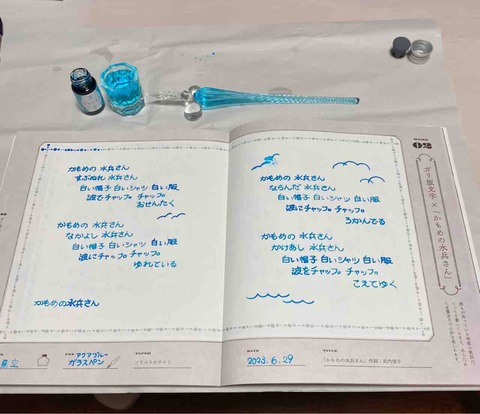 かもめの 水兵さん
ずぶぬれ 水兵さん
白い帽子 白いシャツ 白い服
波でチャップ チャップ
おせんたく
かもめの 水兵さん
なかよし 水兵さん
白い帽子 白いシャツ 白い服
波にチャップ チャップ
ゆれている
かもめの水兵さん
かもめの 水兵さん
ならんだ 水兵さん
白い帽子 白いシャツ 白い服
波にチャップ チャップ
うかんでる
かもめの 水兵さん
かけあし 水兵さん
白い帽子 白いシャツ 白い服
波をチャップ チャップ
こえてゆく
02
ガリ版文字×「かもめの水兵さん」
アクアブルー
ガラスペン
2023.6.29
「かもめの水兵さん」作詞:武内俊子